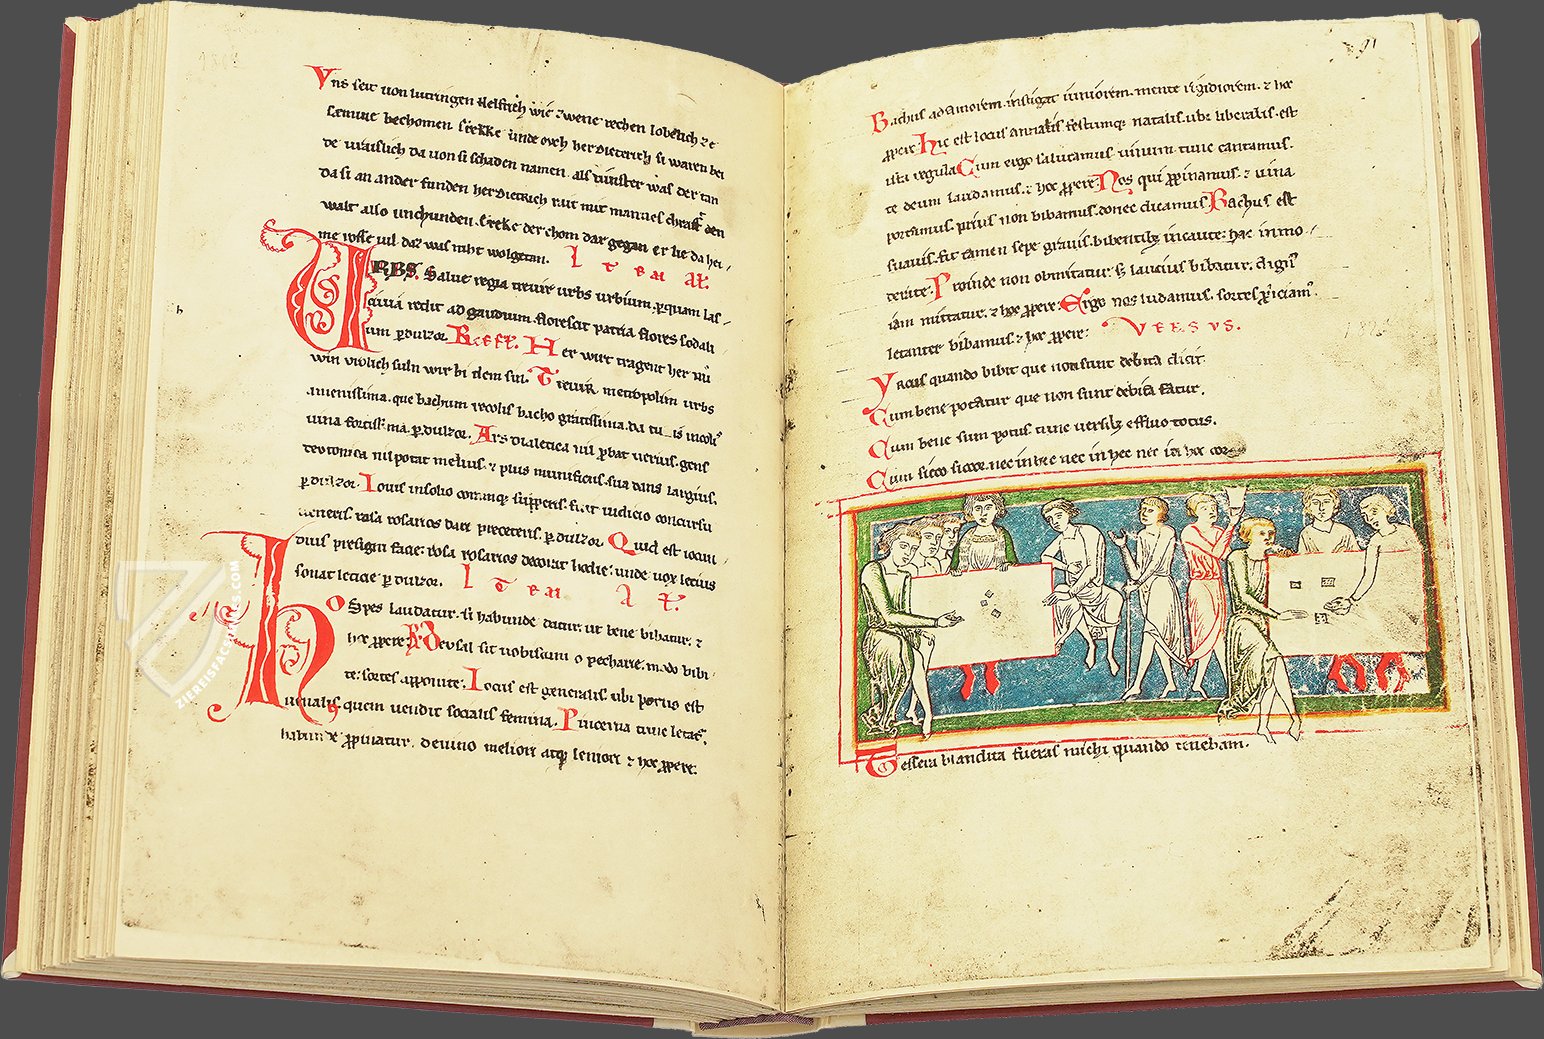 Vns seit von lutringen Helfrich wie zwene rechen lobelich ze
sæmine bechomen Erekke unde ovch her Dieterich si waren bei
de vraislich da von si schaden namen. als vinster was der tan
da si an ander funden her Dietrich rait mit mannes chraft den
walt also unchunden. Ereke der chom dar gegan er lie da hei-
me rosse vil daz was niht wolgetan. ITEM AL.
URBS Salve regia trevir urbs urbium p quam las-
civia redit ad gaudium. florescit patria flores sodali
um p dulzor. Reff. Her wirt tragent her nu
win vrolich suln wir bi dem sin. Trevir metropolim urbs
amenissima. que bachum recolis bacho gratissima. da tu is incolis
vina fortissima. p dulzor. Ars dialetica nil probat verius. gens
teotonica nil potat melius. & plus munificus sua dans largius.
p dulzor. Iovis in solio comumq suppetens. fert iudicio concursu
veneris. rosa rosarios dari preceteris. p dulzor. Quid est iocun
dius presigni facie. rosa rosarios decorat hodie. unde vox letius
sonat leticie p dulzor. ITEM AL.
Hospes laudatur. si habunde datur. ut bene bibatur. &
hoc ppere. Revsil sit vobiscum o pecharie. modo bibi-
te. sortes apponite. Locus est generalis. ubi potus est
venalis. quem vendit socialis femina. Pincerna tune letatur.
habunde ppinatur. de vino meliori atq leniori & hoc ppere.
91
Bachus ad amorem. instigat iuniorem. mente &
ppere. Hic est locus annalis. festumq natalis. ubi liberalis est
ista regula. Cum ergo salutamus. vinum tunc cantamus.
te deum laudamus. & hoc ppere. Nos qui ppinamus. & vina
portamus. prius non bibamus. donec dicamus. Bachus est
suavis. fit tamen sepe gravis. bibentibus incaute. hac in mo-
derate. Proinde non obmittatur. sed lautius bibatur. dignum
iam mittatur. & hoc ppere. Ergo nos ludamus. sortes piciam
letanter bibamus. & hoc ppere. VERSUS.
Yrcus quando bibit que non sunt debita dicit.
Cum bene potatur que non sunt debita fatur.
Cum bene sum potus tunc versibus effluo totus.
Cum sicco siccor. nec in hic nec in hec nec in hoc cor
Tessera blandita fueras michi quando tenebam.
ZIEREISFACSIMILES.COM